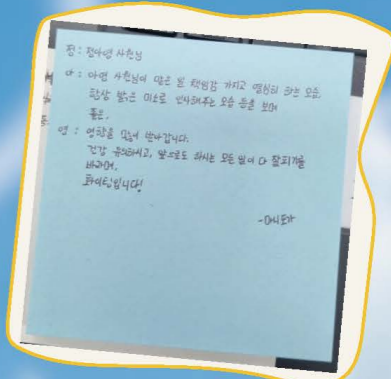 정 : 정아영 사원님
아 : 아영 사원님이 맡은 일 책임감 가지고 열심히 하는 모습,
항상 밝은 미소로 인사해주는 모습 등을 보며
좋은.
영 : 영향을 많이 받아갑니다.
건강 유의하시고, 앞으로도 하시는 모든 일이 다 잘되기를
바라며,
화이팅입니다!
-마니또가